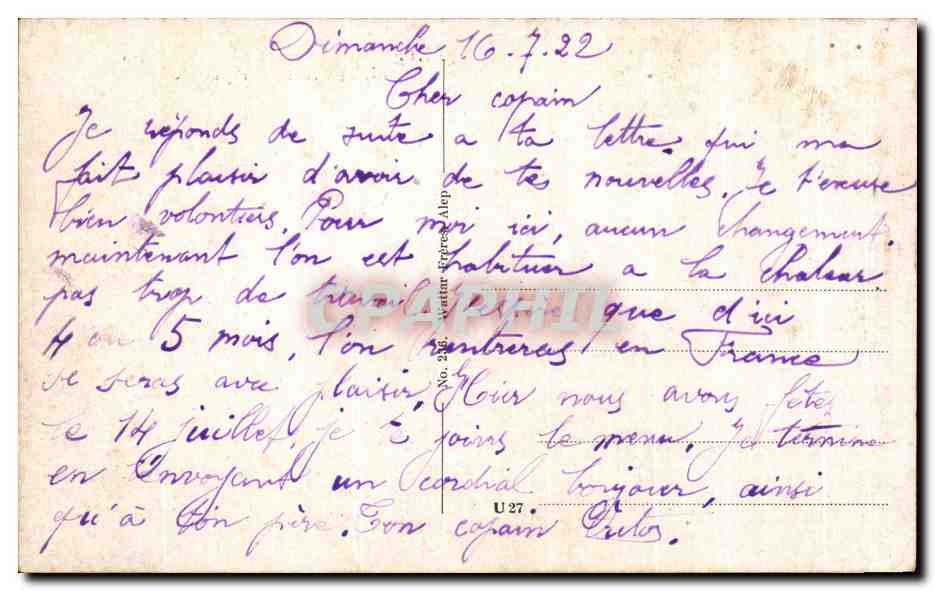 Dimanche 16.7.22
Cher copain
Je réponds de suite a ta lettre qui ma
fait plaisir d'avoir de tes nouvelles. Je t'excuse
bien volontiers. Pour moi ici, aucun changement.
maintenant l'on est habituer a la chaleur.
pas trop de travail, j'espère que d'ici
4 ou 5 mois, l'on rentreras en France
se seras avec plaisir. Hier nous avons fêtés
le 14 juillet, je joins le menu. Je termine
en t'envoyant un cordial bonjour, ainsi
qu'à ton père. Ton copain
No. 256. Wattar Frères, Alep
U 27.
CPAPHIL